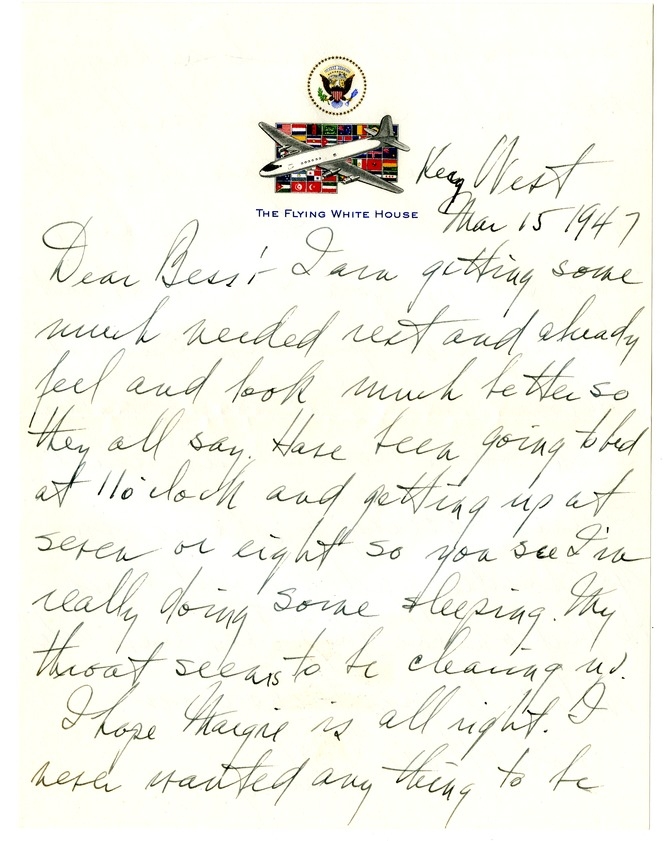 Key West
THE FLYING WHITE HOUSE
Mar 15 1947
Dear Bess:- I am getting some
much needed rest and already
feel and look much better so
they all say. Have been going to bed
at 11 o'clock and getting up at
seven or eight so you see I'm
really doing some sleeping. My
throat seems to be clearing up.
I hope Margie is all right. I
never wanted any thing to be